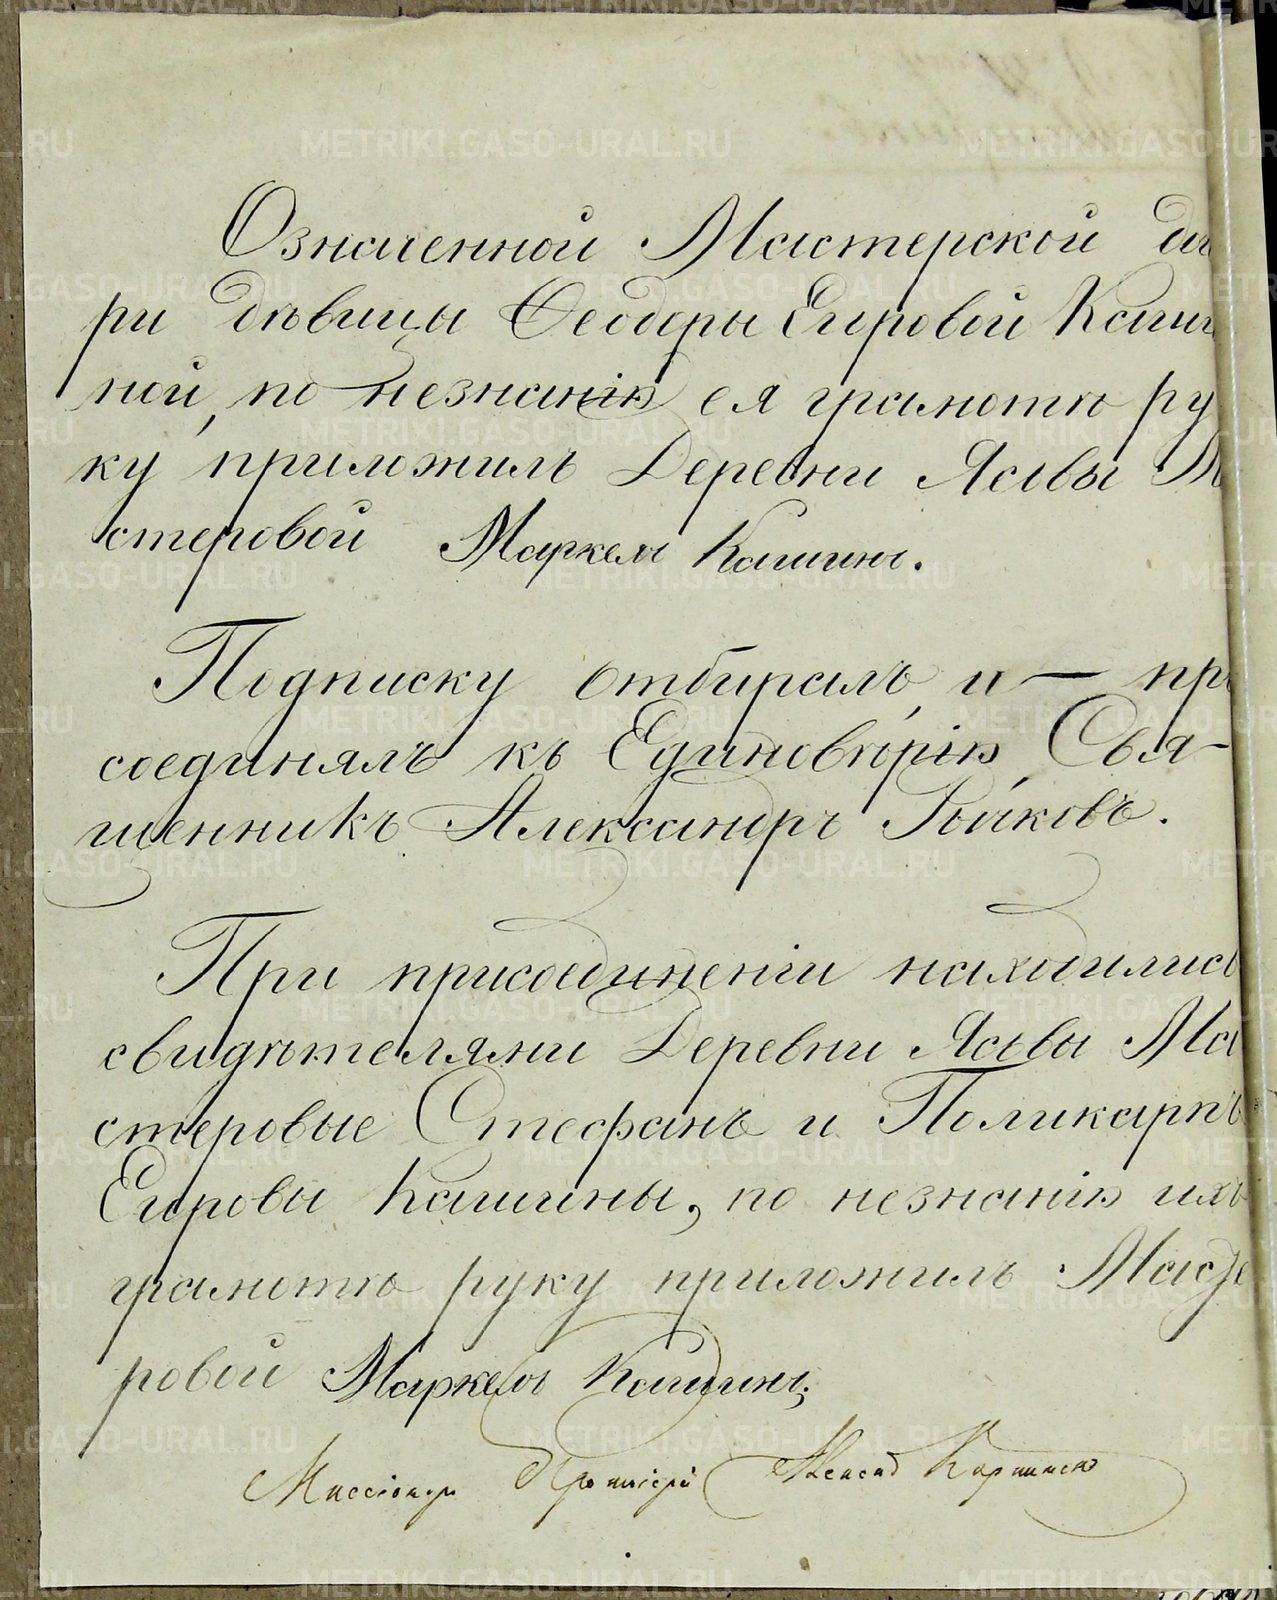 Означенной Мастерской до
ри дѣвицы Ѳеодоры Егоровой Каши
ной, по незнанію ея грамотѣ ру
ку приложилъ Деревни Ясьвы Ма
стеровой Маркелъ Кашинъ.
Подписку отбиралъ, и — при
соединялъ къ Единовѣрію, Свя-
щенникъ Александръ Быковъ.
При присоединеніи находились
свидѣтелями Деревни Ясьвы Ма
стеровые Стефанъ и Поликарпъ
Егоровы Кашины, по незнанію ихъ
грамотѣ руку приложилъ Масте
ровой Маркелъ Кашинъ;
Миссіонеръ Протоіерей